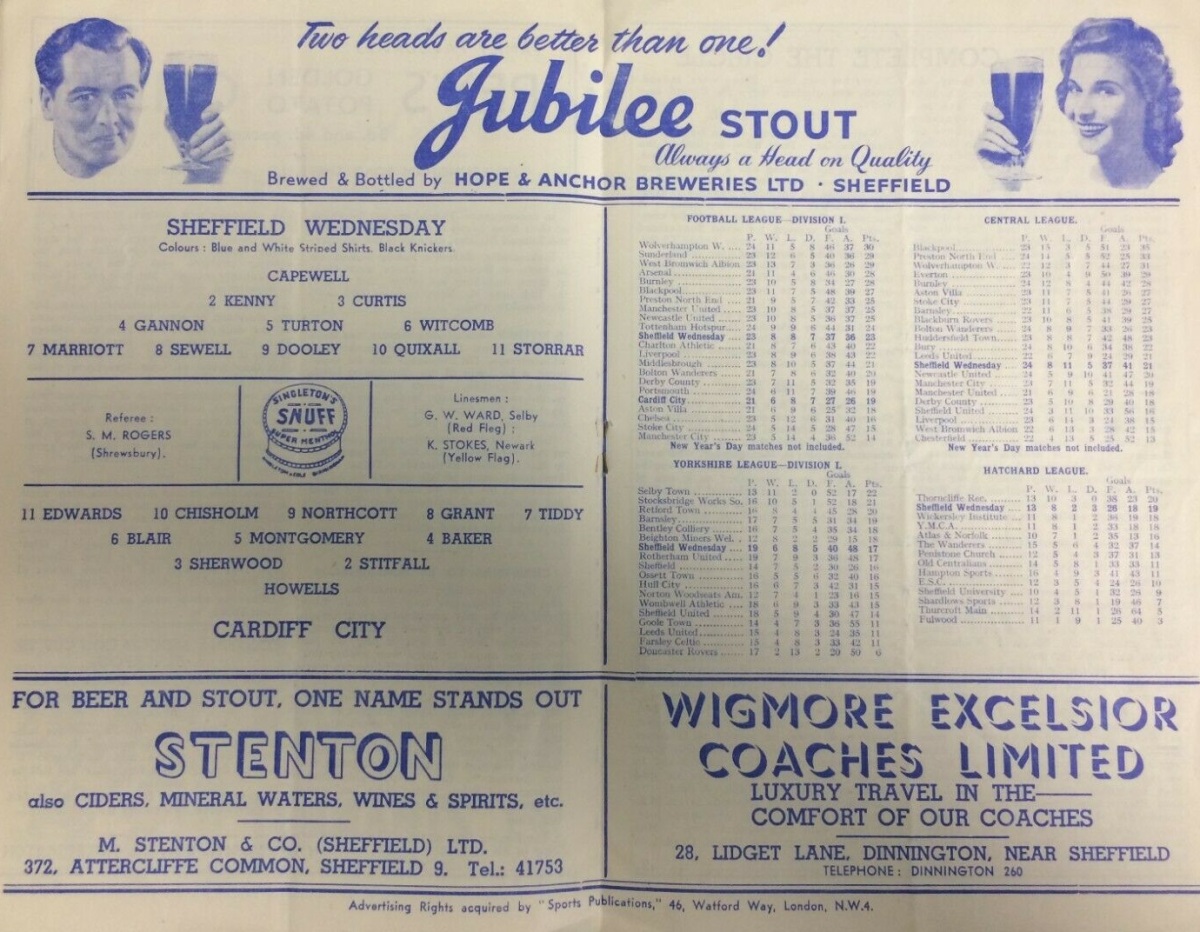 Two heads are better than one!
Jubilee STOUT
Always a Head on Quality
Brewed & Bottled by HOPE & ANCHOR BREWERIES LTD · SHEFFIELD
SHEFFIELD WEDNESDAY
Colours : Blue and White Striped Shirts. Black Knickers.
CAPEWELL
2 KENNY 3 CURTIS
4 GANNON 5 TURTON 6 WITCOMB
7 MARRIOTT 8 SEWELL 9 DOOLEY 10 QUIXALL 11 STORRAR
Referee :
S. M. ROGERS
(Shrewsbury).
SINGLETON'S
SNUFF
SUPER MENTHOL
Linesmen :
G. W. WARD, Selby
(Red Flag) ;
K. STOKES, Newark
(Yellow Flag).
11 EDWARDS 10 CHISHOLM 9 NORTHCOTT 8 GRANT 7 TIDDY
6 BLAIR 5 MONTGOMERY 4 BAKER
3 SHERWOOD 2 STITFALL
HOWELLS
CARDIFF CITY
FOOTBALL LEAGUE—DIVISION I.
Goals
P. W. L. D. F. A. Pts.
Wolverhampton W. .... 24 11 5 8 46 37 30
Sunderland 23 12 6 5 40 36 29
West Bromwich Albion 23 13 7 3 36 26 29
Arsenal 21 11 4 6 46 30 28
Burnley 23 10 5 8 34 27 28
Blackpool 23 11 7 5 48 39 27
Preston North End 21 9 5 7 42 33 25
Manchester United 23 10 8 5 37 37 25
Newcastle United 23 10 8 5 36 37 25
Tottenham Hotspur 24 9 9 6 44 31 24
Sheffield Wednesday 23 8 8 7 37 36 23
Charlton Athletic 21 8 7 6 43 40 22
Liverpool 23 8 9 6 38 43 22
Middlesbrough 23 8 10 5 37 44 21
Bolton Wanderers 21 7 8 6 32 40 20
Derby County 23 7 11 5 32 35 19
Portsmouth 24 6 11 7 39 46 19
Cardiff City 21 6 8 7 27 26 19
Aston Villa 21 6 9 6 25 32 18
Chelsea 23 5 12 6 31 40 16
Stoke City 24 5 14 5 28 47 15
Manchester City 23 5 14 4 36 52 14
New Year's Day matches not included.
CENTRAL LEAGUE.
Goals
P. W. L. D. F. A. Pts.
Blackpool 23 15 3 5 51 23 35
Preston North End 24 14 5 5 52 25 33
Wolverhampton W. 22 12 3 7 44 27 31
Everton 23 10 4 9 50 39 29
Burnley 24 12 8 4 44 42 28
Aston Villa 23 11 7 5 41 26 27
Stoke City 23 11 7 5 44 29 27
Barnsley 22 11 6 5 38 29 27
Blackburn Rovers 23 10 8 5 41 39 25
Bolton Wanderers 24 8 9 7 33 26 23
Huddersfield Town 23 8 8 7 42 48 23
Bury 24 8 10 6 34 38 22
Leeds United 22 6 7 9 24 29 21
Sheffield Wednesday 24 8 11 5 37 41 21
Newcastle United 24 5 9 10 41 47 20
Manchester City 23 7 11 5 32 44 19
Manchester United 21 6 9 6 21 28 18
Derby County 23 5 10 8 29 40 18
Sheffield United 24 3 11 10 33 56 16
Liverpool 23 6 14 3 24 38 15
West Bromwich Albion 22 6 13 3 28 42 15
Chesterfield 22 4 13 5 25 52 13
New Year's Day matches not included.
YORKSHIRE LEAGUE—DIVISION I.
Goals
P. W. L. D. F. A. Pts.
Selby Town 13 11 2 0 52 17 22
Stocksbridge Works So. 16 10 5 1 52 18 21
Retford Town 16 8 4 4 45 28 20
Barnsley 17 7 5 5 31 34 19
Bentley Colliery 16 7 5 4 35 34 18
Beighton Miners Wel. 12 8 2 2 29 15 18
Sheffield Wednesday 19 6 8 5 40 48 17
Rotherham United 19 7 9 3 36 48 17
Sheffield 14 7 5 2 30 26 16
Ossett Town 16 5 5 6 32 40 16
Hull City 16 6 7 3 42 31 15
Norton Woodseats Am. 12 7 4 1 23 16 15
Wombwell Athletic 18 6 9 3 33 43 15
Sheffield United 18 5 9 4 36 47 14
Goole Town 14 4 7 3 36 55 11
Leeds United 15 4 8 3 24 35 11
Farsley Celtic 15 4 8 3 33 42 11
Doncaster Rovers 17 2 13 2 20 50 6
HATCHARD LEAGUE.
Goals
P. W. L. D. F. A. Pts.
Thorncliffe Rec. 13 10 3 0 38 23 20
Sheffield Wednesday 13 8 2 3 26 18 19
Wickersley Institute 11 8 1 2 36 19 18
Y.M.C.A. 11 8 1 2 33 18 18
Atlas & Norfolk 10 7 1 2 35 13 16
The Wanderers 15 5 6 4 32 37 14
Penistone Church 12 5 4 3 37 31 13
Old Centralians 14 5 8 1 33 33 11
Hampton Sports 16 4 9 3 41 43 11
E.S.C. 12 3 5 4 24 26 10
Sheffield University 10 4 5 1 32 26 9
Shardlows Sports 12 3 8 1 19 46 7
Thurcroft Main 14 2 11 1 26 64 5
Fulwood 11 1 9 1 25 40 3
FOR BEER AND STOUT, ONE NAME STANDS OUT
STENTON
also CIDERS, MINERAL WATERS, WINES & SPIRITS, etc.
M. STENTON & CO. (SHEFFIELD) LTD.
372, ATTERCLIFFE COMMON, SHEFFIELD 9. Tel.: 41753
WIGMORE EXCELSIOR
COACHES LIMITED
LUXURY TRAVEL IN THE—
COMFORT OF OUR COACHES
28, LIDGET LANE, DINNINGTON, NEAR SHEFFIELD
TELEPHONE : DINNINGTON 260
Advertising Rights acquired by "Sports Publications," 46, Watford Way, London, N.W.4.